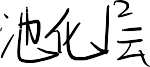 池化层